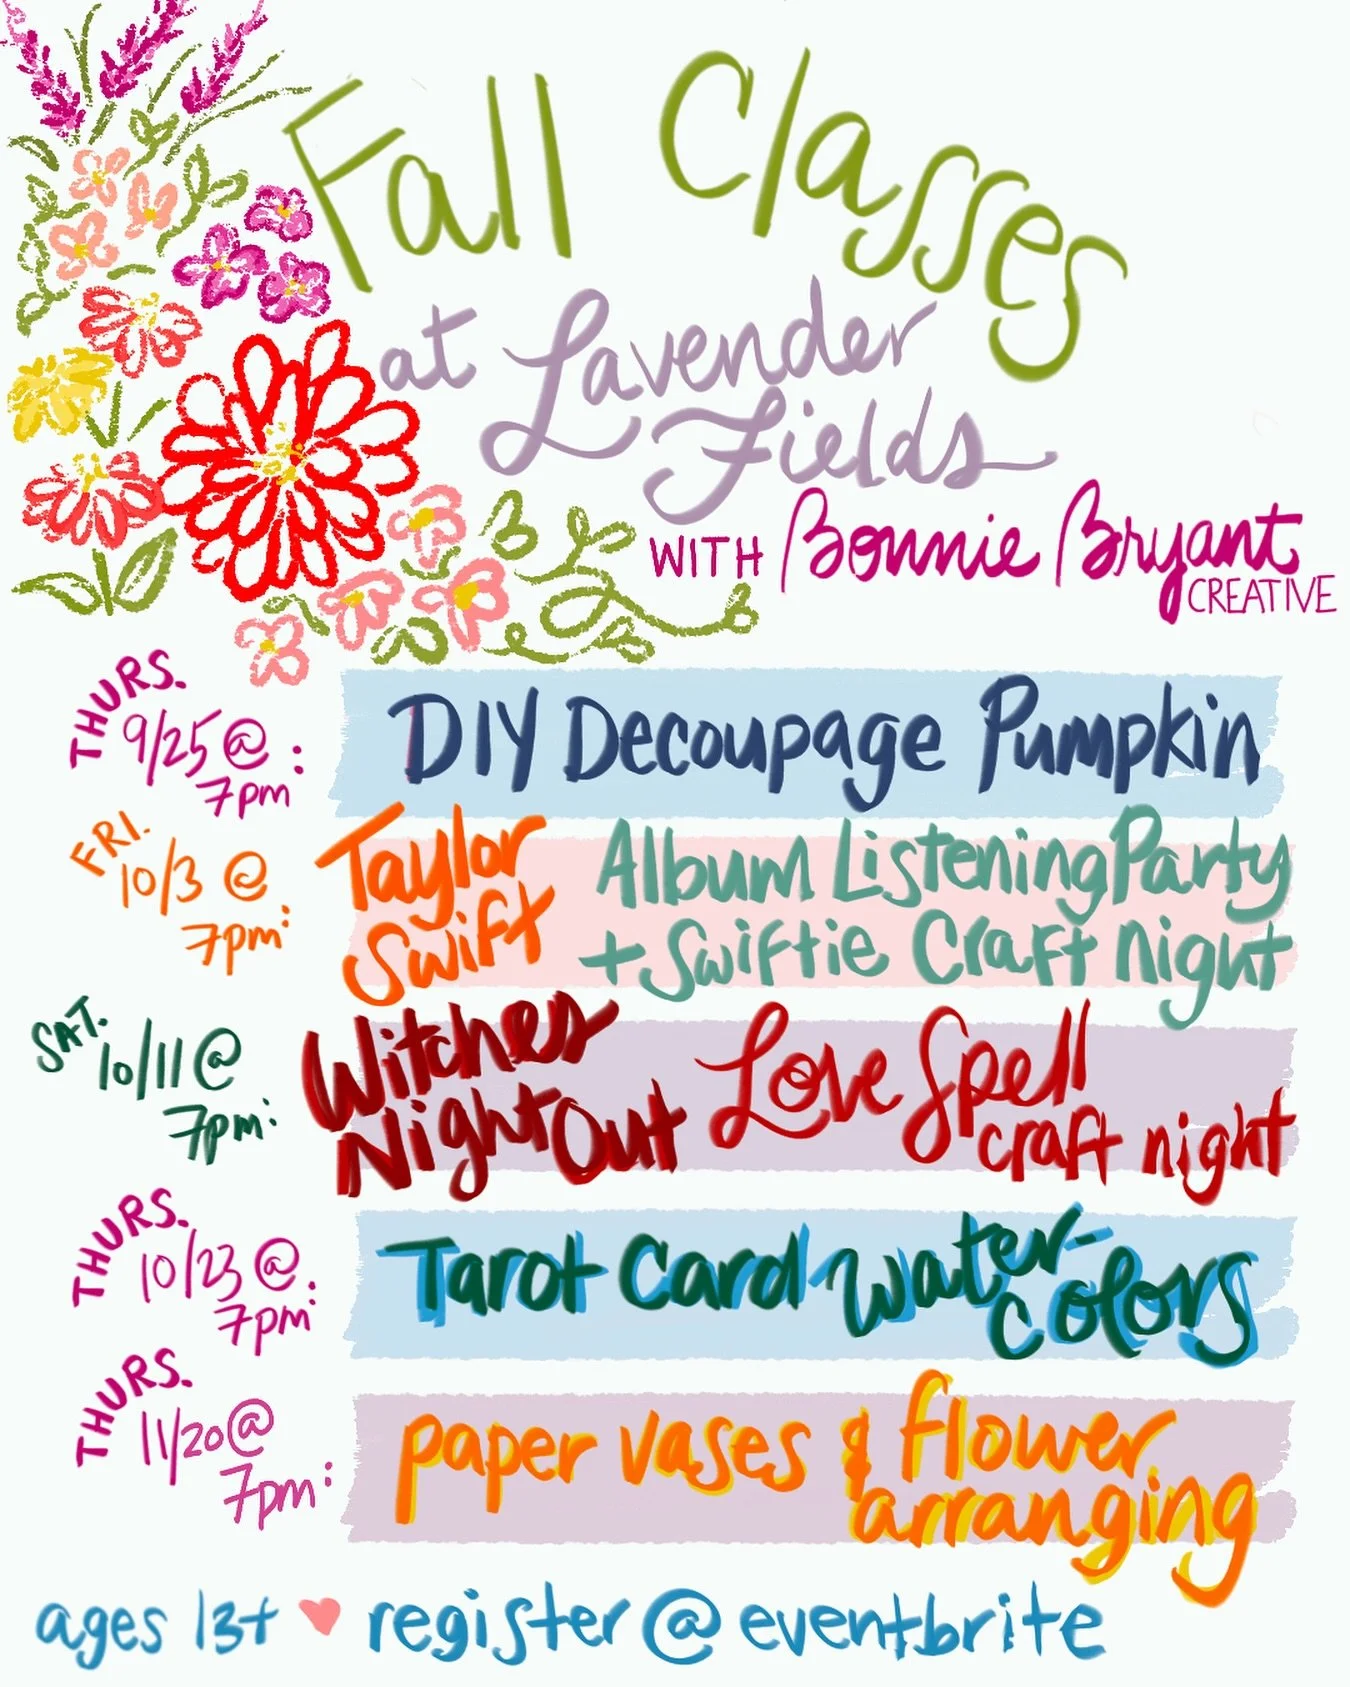 Fall Classes
at Lavender
Fields
WITH Bonnie Bryant
CREATIVE
THURS.
9/25 @
7pm:
DIY Decoupage Pumpkin
FRI.
10/3 @
7pm:
Taylor
Swift
Album Listening Party
+ Swiftie Craft Night
SAT.
10/11 @
7pm:
Witches
Night Out
Love Spell
craft night
THURS.
10/23 @
7pm:
Tarot Card Water-
colors
THURS.
11/20 @
7pm:
paper vases & flower
arranging
ages 13+ ♥ register @ eventbrite